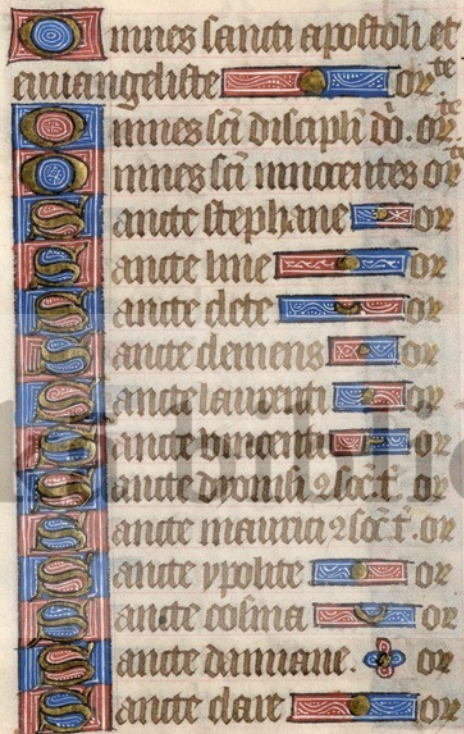 Omnes sancti apostoli et
euuangeliste orte
Omnes sci discipli dn̄. orte
Omnes sci innocentes orte
Sancte stephane or
Sancte line or
Sancte clete or
Sancte clemens or
Sancte laurenti or
Sancte vincenti or
Sancte dyonisi ꝯ soc̄. t̄. or
Sancte maurici ꝯ soc̄ t̄. or
Sancte ypolite or
Sancte cosma or
Sancte damiane. or
Sancte clare or